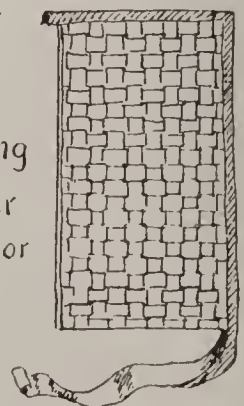 ng
r
or